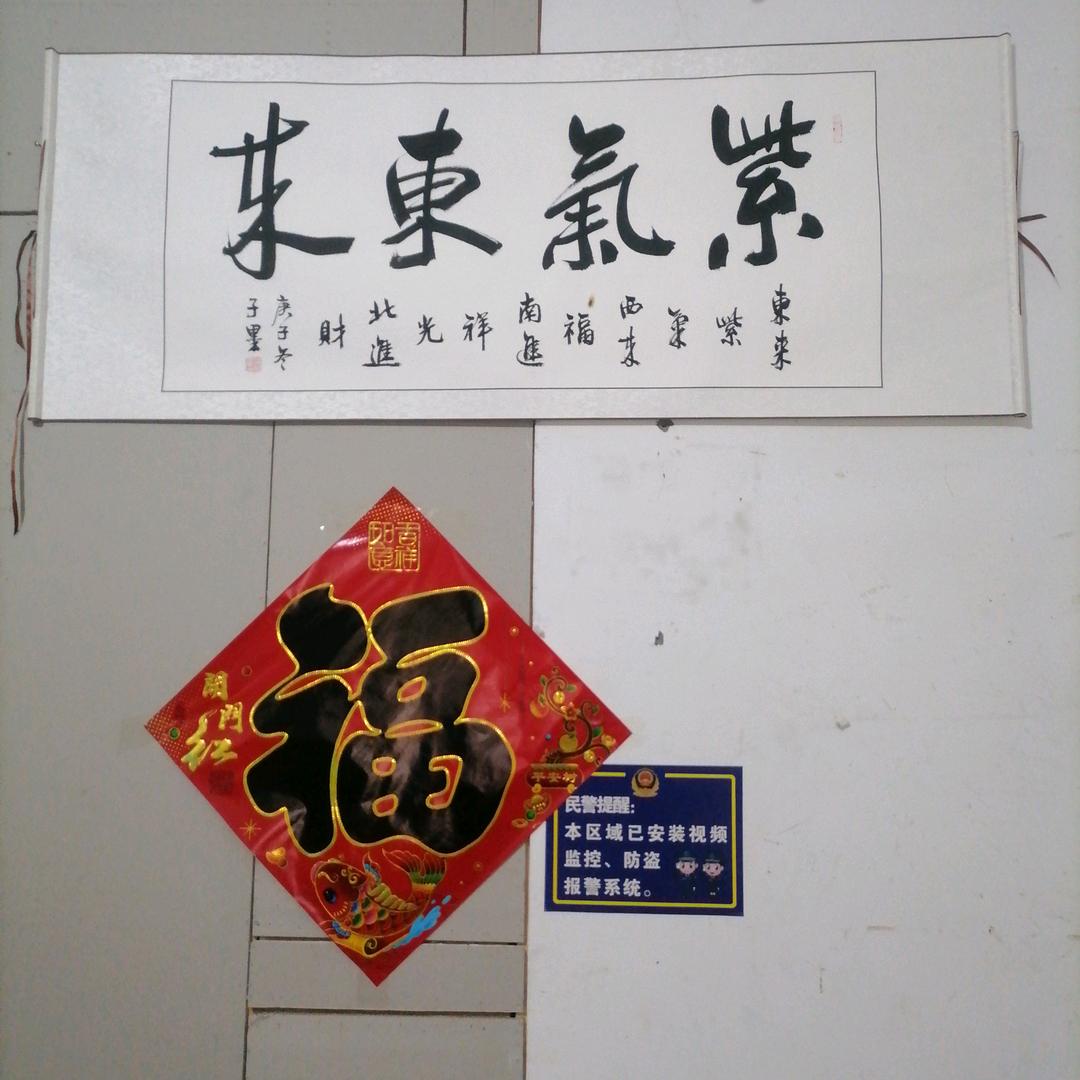 紫氣東来
東来紫氣西来福南進祥光北進財
庚子冬
子墨
吉祥
如意
福
開門红
平安树
民警提醒:
本区域已安装视频
监控、防盗
报警系统。